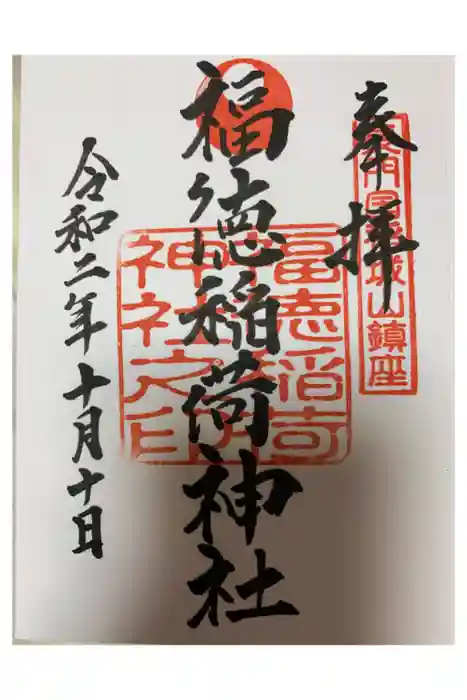 奉拝
山鎮座
福徳稲荷神社
福徳稲荷
神社之印
令和二年十月十日